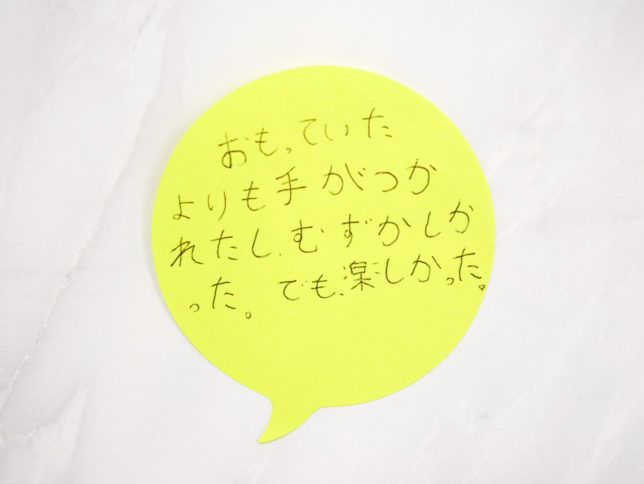 おもっていた
よりも手がつか
れたし、むずかしか
った。でも、楽しかった。